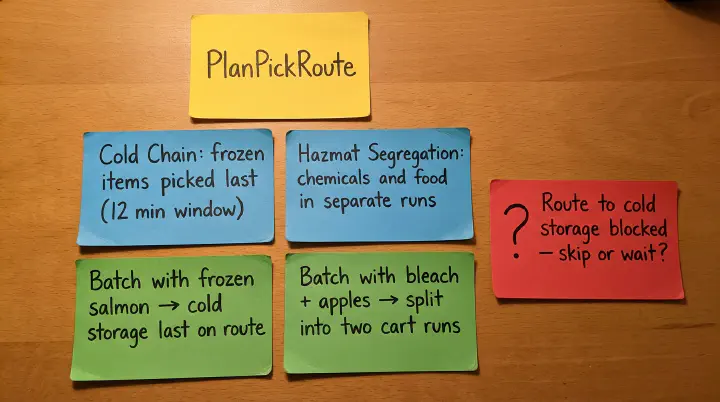 PlanPickRoute
Cold Chain: frozen
items picked last
(12 min window)
Hazmat Segregation:
chemicals and food
in separate runs
? Route to cold
storage blocked
– skip or wait?
Batch with frozen
salmon → cold
storage last on route
Batch with bleach
+ apples → split
into two cart runs